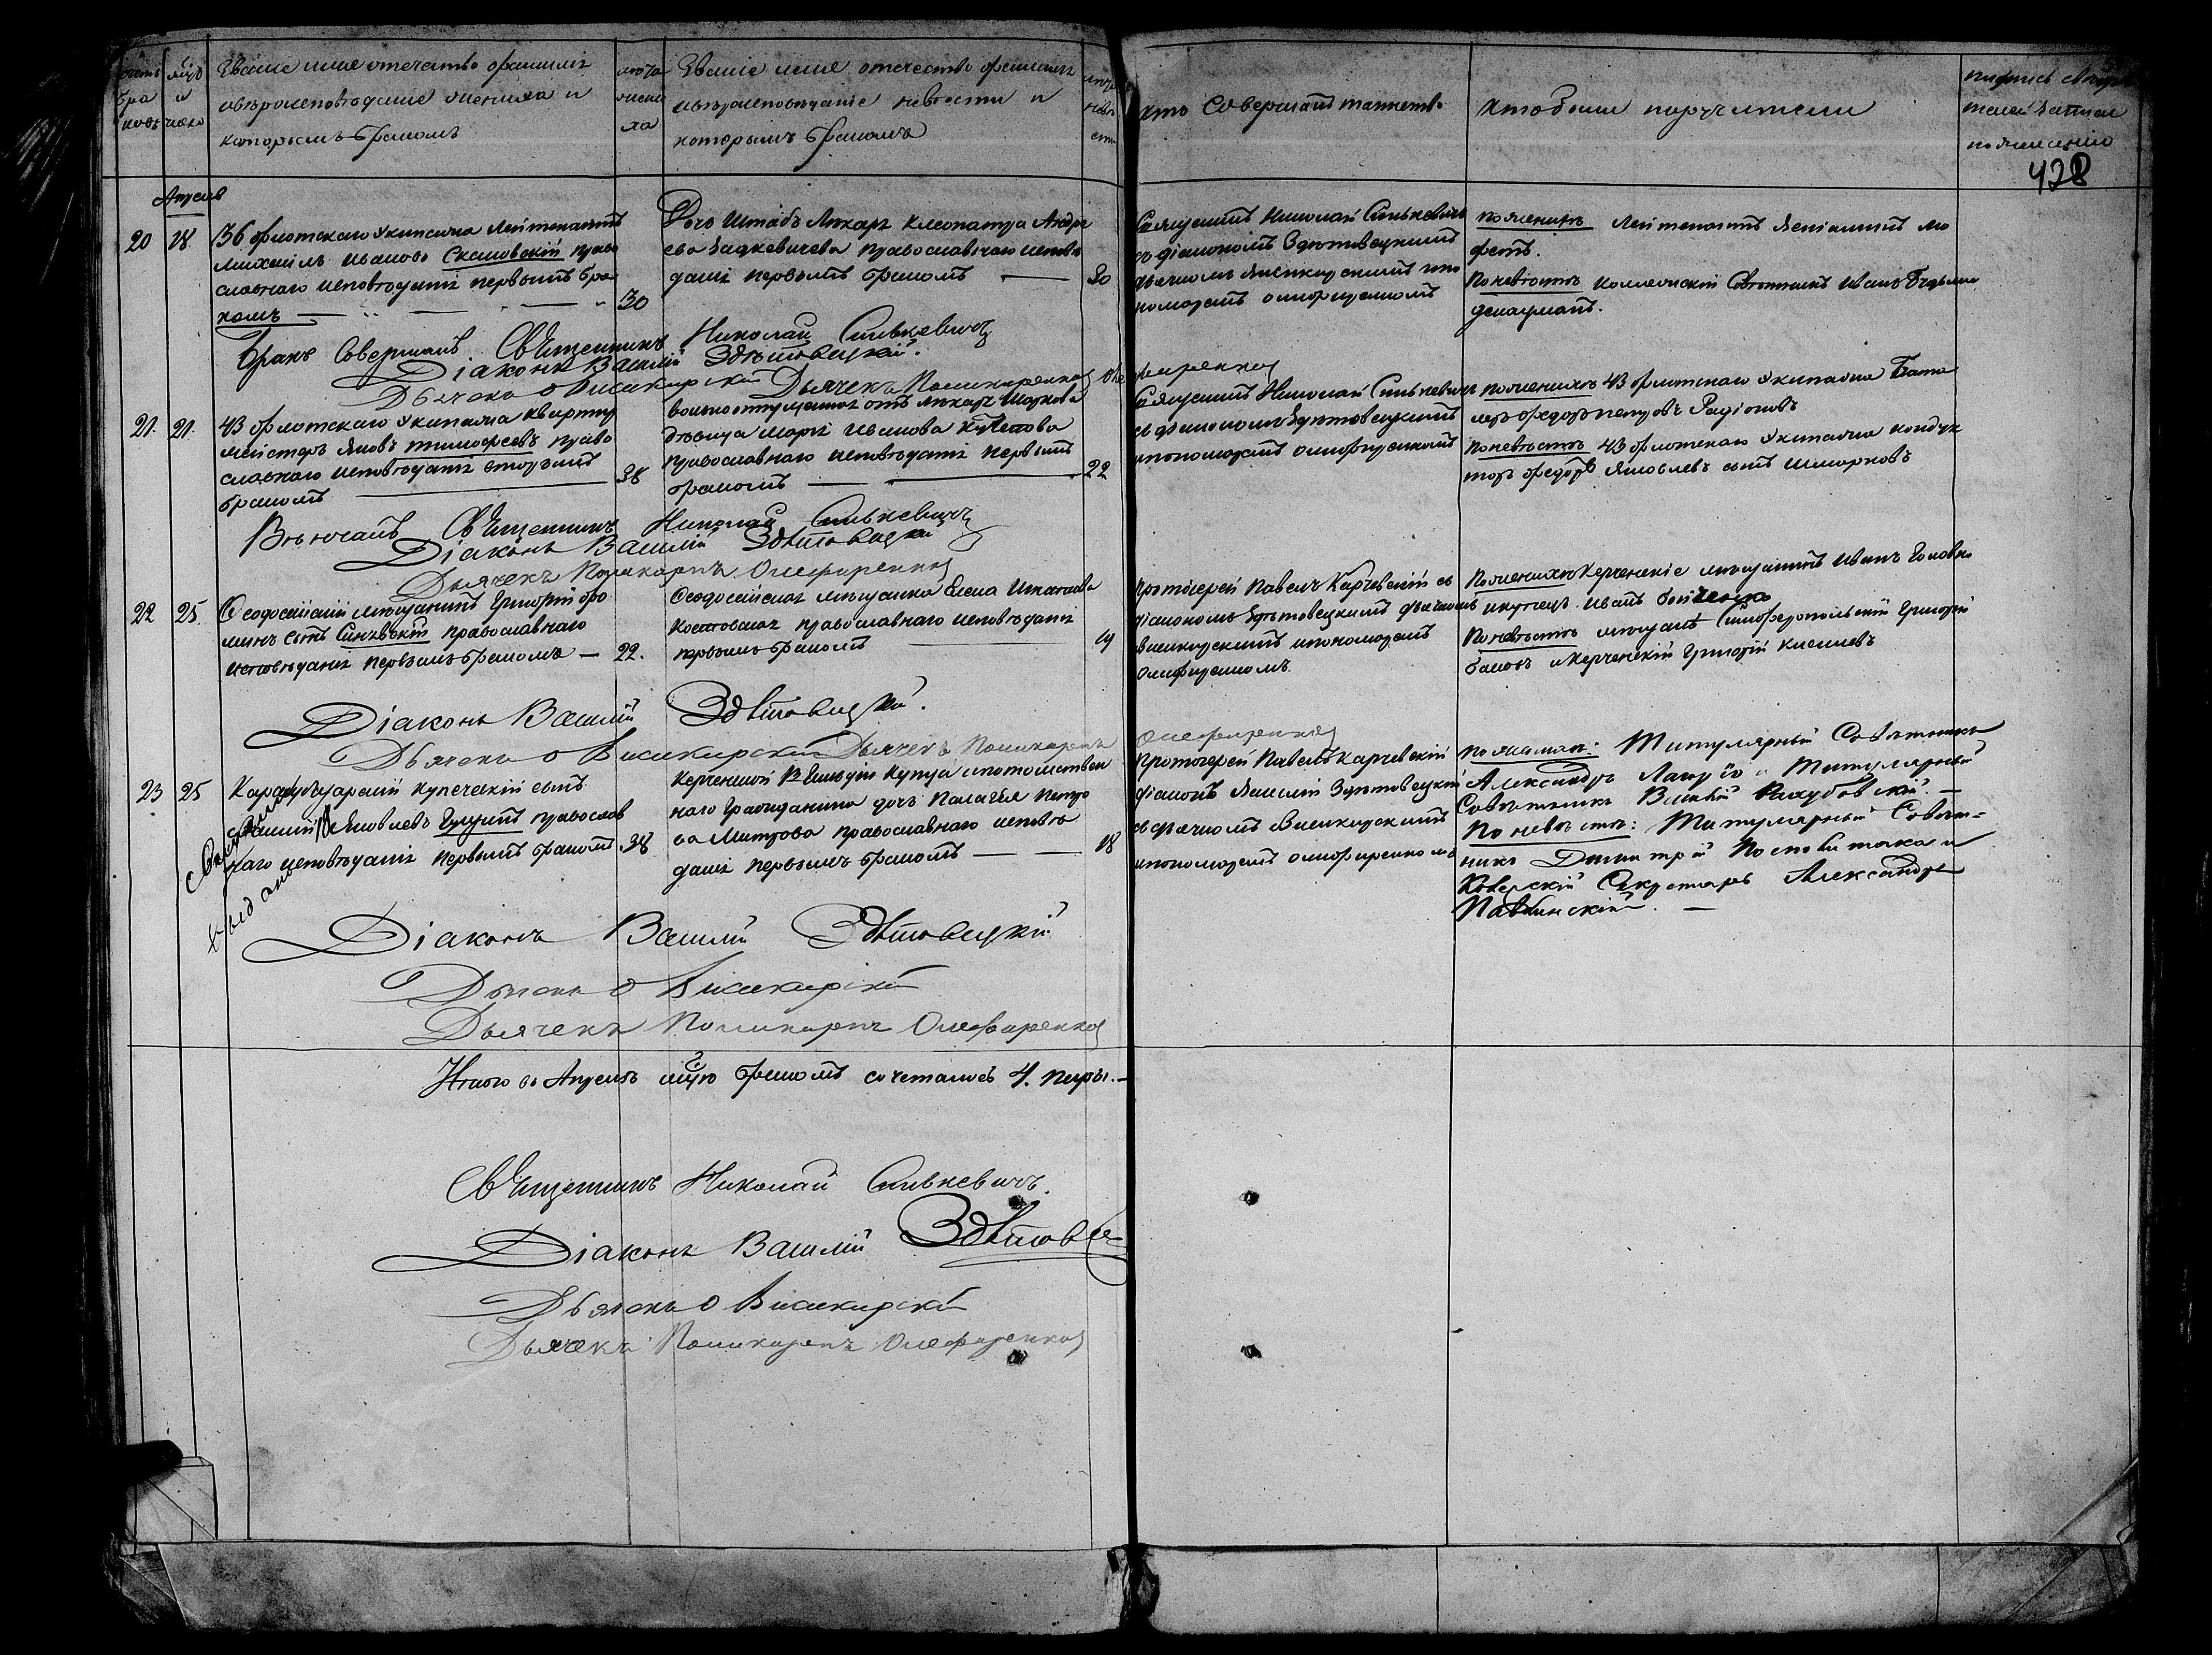 бра
ковъ
мцъ
и
число
Званіе имя отечество фамилія
и вѣроисповѣданіе жениха и
которымъ бракомъ
лѣта
жени
ха
Званіе имя отечество фамилія
и вѣроисповѣданіе невѣсты и
которымъ бракомъ
лѣта
невѣ
сты
кто совершалъ таинство
кто были поручители
подпись свидѣ
телей записи
по желанію
428
Апрель
20
18
36 флотскаго экипажа Лейтенантъ
Михаилъ Ивановъ Скаловскій право
славнаго исповѣданія первымъ бра
комъ
30
Дочь Штабъ Лѣкаря Клеопатра Андре
ева Бацкевичева православнаго исповѣ
данія первымъ бракомъ
20
Священникъ Николай Синькевичъ
съ діакономъ Здѣтовецкимъ
дьячкомъ Висикирскимъ и по
номаремъ Олефиренкомъ
по женихѣ Лейтенантъ
фетъ.
По невѣстѣ Коллежскій Совѣтникъ Иванъ
Бракъ Совершалъ Священникъ Николай Синькевичъ
Діаконъ Василій Здѣтовецкій.
Дьячекъ Висикирскій Дьячекъ Поликарпъ Оле
фиренко
21.
21.
43 флотскаго экипажа квартир
мейстеръ Яковъ Тимофеевъ право
славнаго исповѣданія вторымъ
бракомъ
38
вольноотпущенная отъ лѣкаря Шаркова
дѣвица Марія Иванова
православнаго исповѣданія первымъ
бракомъ
22
Священникъ Николай Синькевичъ
съ діакономъ Здѣтовецкимъ
и пономаремъ Олефиренкомъ
по женихѣ 43 флотскаго экипажа
Федоръ Петровъ Радіоновъ
По невѣстѣ 43 флотскаго экипажа кондук
торъ Федоръ Яковлевъ сынъ Шмарковъ
Вѣнчалъ Священникъ Николай Синькевичъ
Діаконъ Василій Здѣтовецкій
Дьячекъ Поликарпъ Олефиренко
22
25.
Феодосійскій мѣщанинъ Григорій
сынъ православнаго
исповѣданія первымъ бракомъ
22.
Феодосійская мѣщанка Елена Игнатова
православнаго исповѣданія
первымъ бракомъ
19
Протоіерей Павелъ Карчевскій съ
діакономъ Здѣтовецкимъ дьячкомъ
Висикирскимъ и пономаремъ
Олефиренкомъ
По женихѣ Керченскіе мѣщанинъ Иванъ Головко
и купецъ Иванъ Бойченко
По невѣстѣ мѣщане Симферопольскій Григорій
и Керченскій Григорій Киселевъ
Діаконъ Василій Здѣтовецкій.
Дьячекъ Висикирскій Дьячекъ Поликарпъ
Олефиренко
23
25
Карасубазарскій купеческій сынъ
Василій Яковлевъ православ
наго исповѣданія первымъ бракомъ.
38
Керченской 2й гильдіи купца и потомствен
наго гражданина дочь Палагея Петро
ва Митрова православнаго исповѣ
данія первымъ бракомъ
18
Протоіерей Павелъ Карчевскій
діаконъ Василій Здѣтовецкій
съ дьячкомъ Висикирскимъ
и пономаремъ Олефиренкомъ
по женихѣ: Титулярный Совѣтникъ
Александръ и Титулярный
Совѣтникъ
По невѣстѣ: Титулярный Совѣт-
никъ Димитрій Посполитака и
Секретарь Александръ
Павлинскій.
Діаконъ Василій Здѣтовецкій
Дьячекъ Висикирскій
Дьячекъ Поликарпъ Олефиренко
Итого въ Апрелѣ мцѣ бракомъ сочеталось 4. пары.
Священникъ Николай Синькевичъ.
Діаконъ Василій Здѣтовец
Дьячекъ Висикирскій
Дьячекъ Поликарпъ Олефиренко